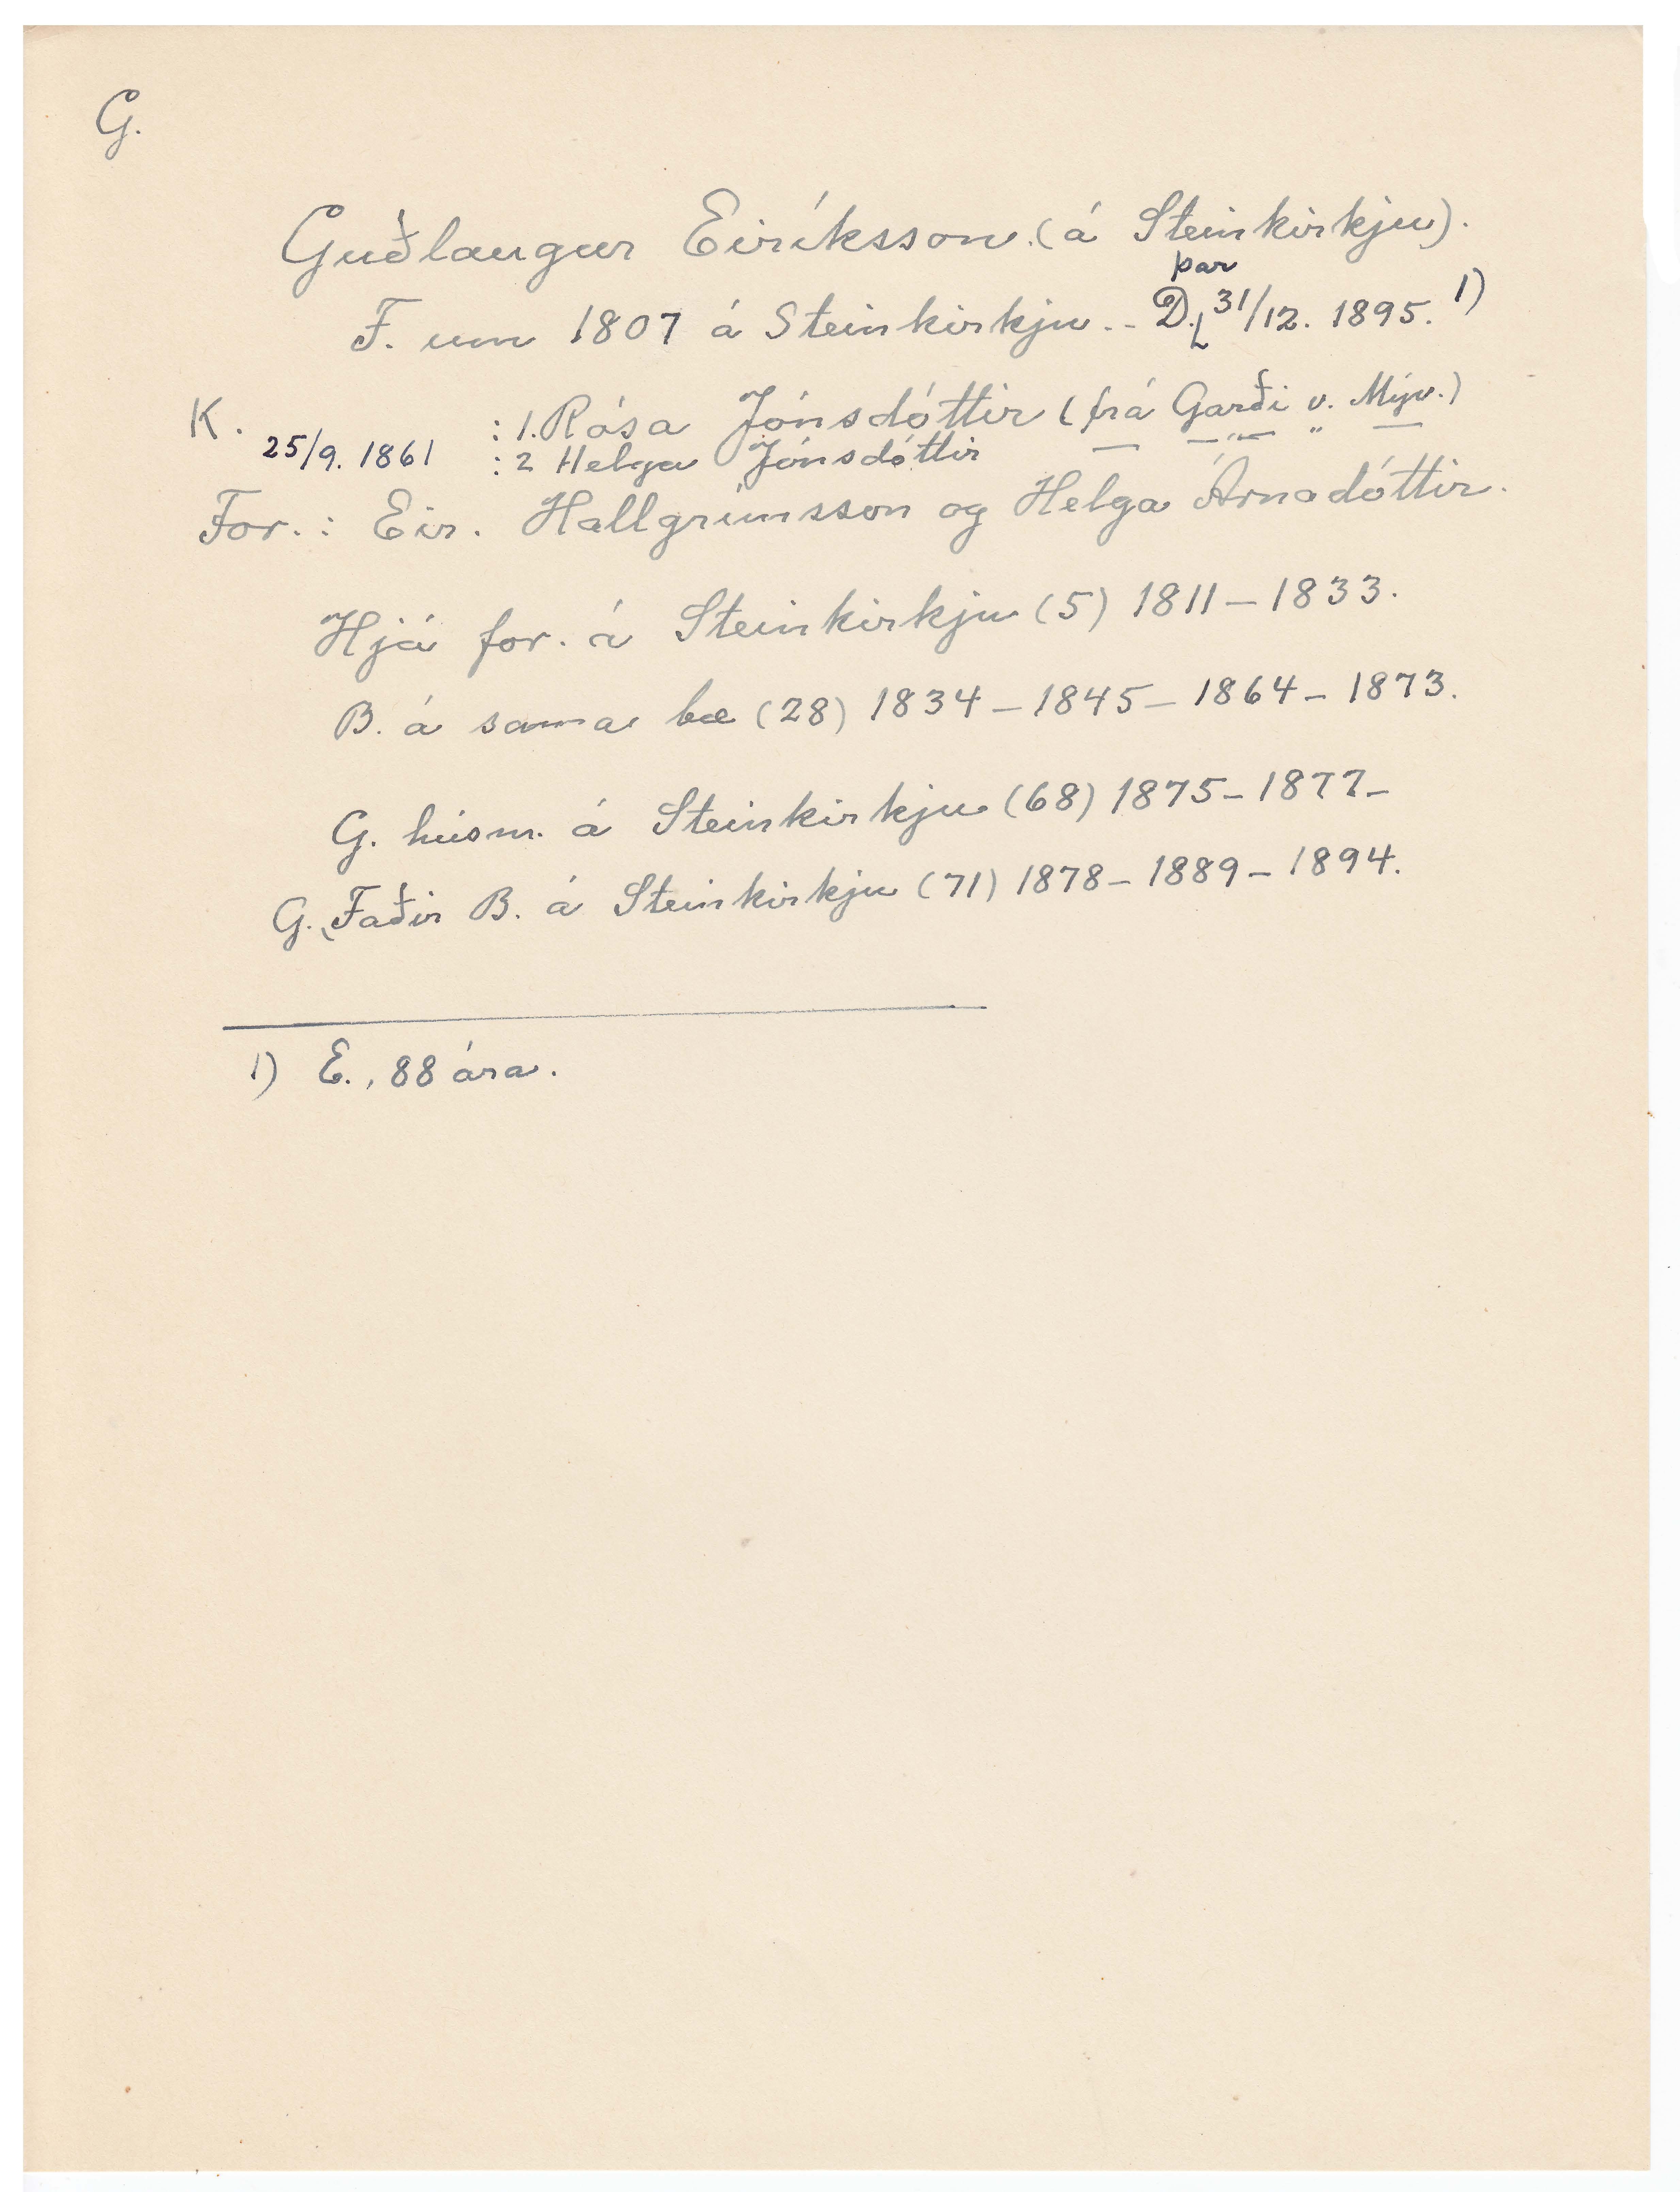 G.
Guðlaugur Eiríksson. (á Steinkirkju).
F. um 1807 á Steinkirkju. - D. þar 31/12. 1895. 1)
K. : 1. Rósa Jónsdóttir (frá Garði v. Mýv.)
25/9. 1861 : 2 Helga Jónsdóttir — —"— " —
For. : Eir. Hallgrímsson og Helga Árnadóttir.
Hjá for. á Steinkirkju (5) 1811 - 1833.
B. á sama bæ (28) 1834 - 1845 - 1864 - 1873.
G. húsm. á Steinkirkju (68) 1875 - 1877 -
G. Faðir B. á Steinkirkju (71) 1878 - 1889 - 1894.
1) E., 88 ára.